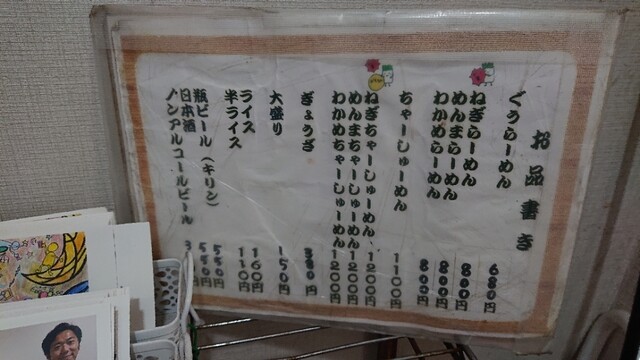 お品書き
ぐぅらーめん 680円
ねぎらーめん 800円
めんまらーめん 800円
わかめらーめん 800円
ちゃーしゅーめん 1100円
ねぎちゃーしゅーめん 1200円
めんまちゃーしゅーめん 1200円
わかめちゃーしゅーめん 1200円
ぎょうざ 380円
大盛り 150円
ライス 160円
半ライス 110円
瓶ビール（キリン） 550円
日本酒 550円
ノンアルコールビール